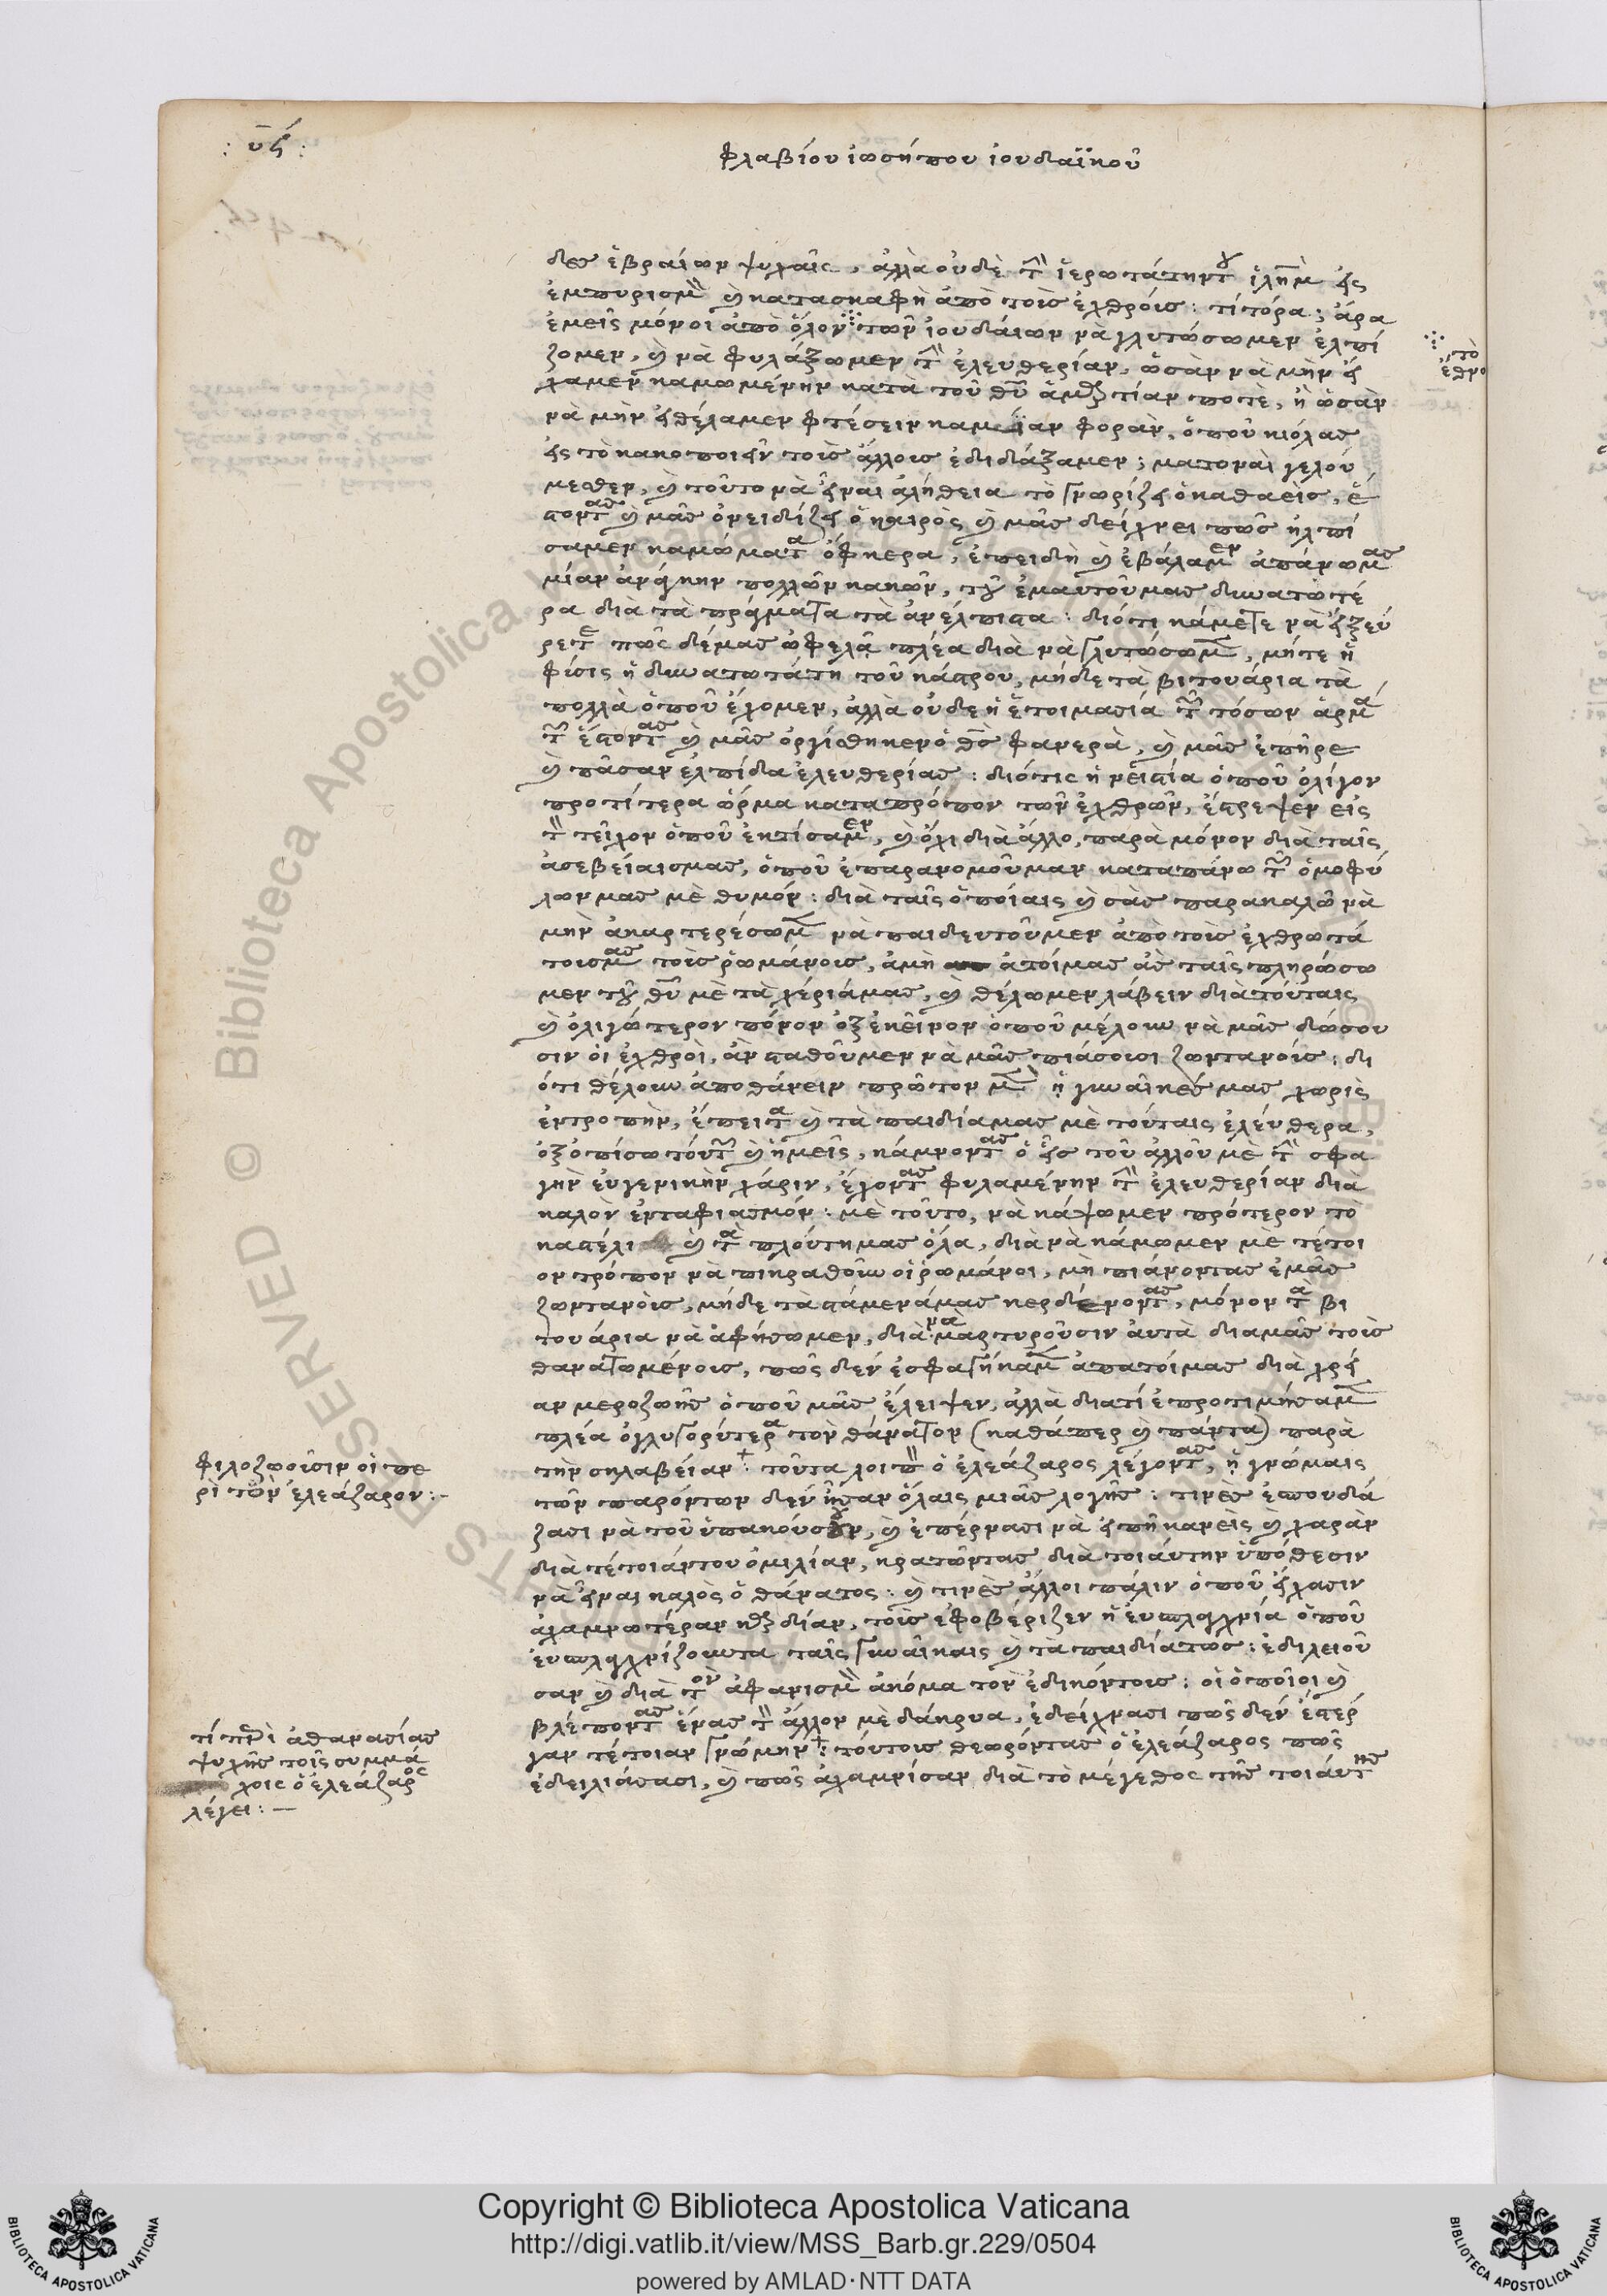 : υϛ :
φλαβίου ἰωσήπου ἰουδαϊκοῦ
ἑβραίων ψυχαῖς, ἀλλὰ οὐδὲ
καὶ κατασκαφὴ ἀπὸ τοὺς ἐχθρούς: τί τόρα; ἄρα
ἐμεῖς μόνοι ἀπὸ ὅλον τῶν ἰουδαίων νὰ γλυτώσωμεν ἐλπί
ζομεν, καὶ νὰ φυλάξωμεν τὴν ἐλευθερίαν, ὡσὰν νὰ μὴν εἴ
χαμεν καμωμένην κατὰ τοῦ θῦ ἁμαρτίαν ποτὲ, ἢ ὡσὰν
νὰ μὴν εἰθέλαμεν φτέσειν καμίαν φορὰν, ὁποῦ κιόλας
εἰς τὸ κακοποιεῖν τοὺς ἄλλους ἐδιδάξαμεν; ματοναὶ γελού
μεσθεν, καὶ τοῦτο νὰ εἶναι ἀλήθεια τὸ γνωρίζει ὁ καθαεὶς, ἔ
στοντας καὶ μᾶς ὀνειδίζει ὁ καιρὸς καὶ μᾶς δείχνει πῶς ἠλπί
σαμεν καμώματα εὔκερα, ἐπειδὴ καὶ ἐβάλαμεν ἀπάνωμας
μίαν ἀνάγκην πολλῶν κακῶν, τοῦ ἐμαυτοῦ μας δυνατώτε
ρα διὰ τὰ πράγματα τὰ ἀνέλπιστα: διότι κάμετε νὰ εἰξεύ
ρετε πῶς δέμας ὠφελᾷ πλέα διὰ νὰ γλυτώσωμεν, μήτε ἡ
φύσις ἡ δυνατωτάτη τοῦ κάστρου, μήδε τὰ βιτουάρια τὰ
πολλὰ ὁποῦ ἔχομεν, ἀλλὰ οὐδε ἡ ἑτοιμασία τῶν τόσων ἁρμά
των ἔστοντας καὶ μᾶς ὀργίσθηκεν ὁ θς φανερὰ, καὶ μᾶς ἐπῆρε
καὶ πᾶσαν ἐλπίδα ἐλευθερίας: διότις ἡ νεἱστία ὁποῦ ὀλίγον
προτίτερα ὥρμα κατα πρόπον τῶν ἐχθρῶν, ἔστρεψεν εἰς
τὸν τεῖχον ὁποῦ ἐκτίσαμεν, καὶ ὄχι διὰ ἄλλο, παρὰ μόνον διὰ ταῖς
ἀσεβείαις μας, ὁποῦ ἐπαρανομοῦμαν καταπάνω τῶν ὁμοφύ
λων μας μὲ θυμόν: διὰ ταῖς ὁποίαις καὶ σᾶς παρακαλῶ νὰ
μὴν ἀκαρτερέσωμεν νὰ παιδευτοῦμεν ἀπὸ τοὺς ἐχθρωτά
τους μας τοὺς ῥωμάνους, ἀμὴ ἀτοίμας ἂς ταῖς πληρώσω
μεν τοῦ θῦ μὲ τὰ χέριάμας, καὶ θέλωμεν λάβειν διὰ τούταις
καὶ ὀλιγώτερον πόνον ὀξ ἐκεῖνον ὁποῦ μέλουν νὰ μᾶς δώσου
σιν οἱ ἐχθροὶ, ἂν σταθοῦμεν νὰ μᾶς πιάσουσι ζωντανούς: δι
ότι θέλουν ἀποθάνειν πρῶτον μὲν ἡ γυναῖκές μας χωρὶς
ἐντροπὴν, ἔπειτα καὶ τὰ παιδίαμας μὲ τούταις ἐλεύθερα,
ὀξ ὀπίσω τούτων καὶ ἡμεῖς, κάμνοντας ὁ εἷς τοῦ ἀλλοῦ μὲ τὴν σφα
γὴν εὐγενικὴν χάριν, ἔχοντας φυλαμένην τὴν ἐλευθερίαν διὰ
καλὸν ἐνταφιασμόν: μὲ τοῦτο, νὰ κάψωμεν πρότερον τὸ
καστέλι καὶ τὰ πλούτη μας ὅλα, διὰ νὰ κάμωμεν μὲ τέτοι
ον τρόπον νὰ πικραθοῦν οἱ ῥωμάνοι, μὴ πιάνοντας ἐμᾶς
ζωντανούς, μήδε τὰ στάμενάμας κερδένοντας, μόνον τὰ βι
τουάρια νὰ ἀφήσωμεν, διὰ να μαρτυροῦσιν αὐτὰ διαμᾶς τοὺς
θανατωμένους, πῶς δὲν ἐσφαγήκαμεν ἀπατοίμας διὰ χρεί
αν μεροζωῆς ὁποῦ μᾶς ἔλειψεν, ἀλλὰ διατί ἐπροτιμήσαμεν
πλέα ὀγλυγορύτερα τὸν θάνατον (καθάπερ καὶ πάντα) παρὰ
τὴν σκλαβείαν: τοῦτα λοιπὸν ὁ ἐλεάζαρος λέγοντας, ἡ γνώμαις
τῶν παρόντων δὲν ἦσαν ὅλαις μιᾶς λογῆς: τινὲς ἐσπουδά
ζασι νὰ τοῦ ὑπακούσουν, καὶ ἐπέρνασι νὰ εἰπῇ κανεὶς καὶ χαρὰν
διὰ τέτοιάντου ὁμιλίαν, κρατῶντας διὰ τοιαύτην ὑπόθεσιν
νὰ εἶναι καλὸς ὁ θάνατος: καὶ τινὲς ἄλλοι πάλιν ὁποῦ εἴχασιν
ἀχαμνωτέραν καρδίαν, τοὺς ἐφοβέριζεν ἡ εὐσπλαγχνία ὁποῦ
εὐσπλαγχνίζουντα ταῖς γυναῖκαις καὶ τὰ παιδίατως: ἐδιλειοῦ
σαν καὶ διὰ τὸν ἀφανισμὸν ἀκόμα τὸν ἐδικόντους: οἱ ὁποῖοι καὶ
βλέποντας ἕνας τὸν ἄλλον μὲ δάκρυα, ἐδείχνασι πῶς δὲν ἐστέρ
γαν τέτοιαν γνώμην: τούτους θεωρόντας ὁ ἐλεάζαρος πῶς
ἐδειλιάσασι, καὶ πῶς ἀχαμνίσαν διὰ τὸ μέγεθος τῆς τοιαύτης
τὸ
ἔθνο
φιλοζωοῦσιν οἱ πε
ρὶ τὸν ἐλεάζαρον:-
τί περὶ ἀθανασίας
ψυχῆς τοῖς συμμά
χοις ὁ ἐλεάζαρος
λέγει: —
Copyright © Biblioteca Apostolica Vaticana
http://digi.vatlib.it/view/MSS_Barb.gr.229/0504
powered by AMLAD·NTT DATA